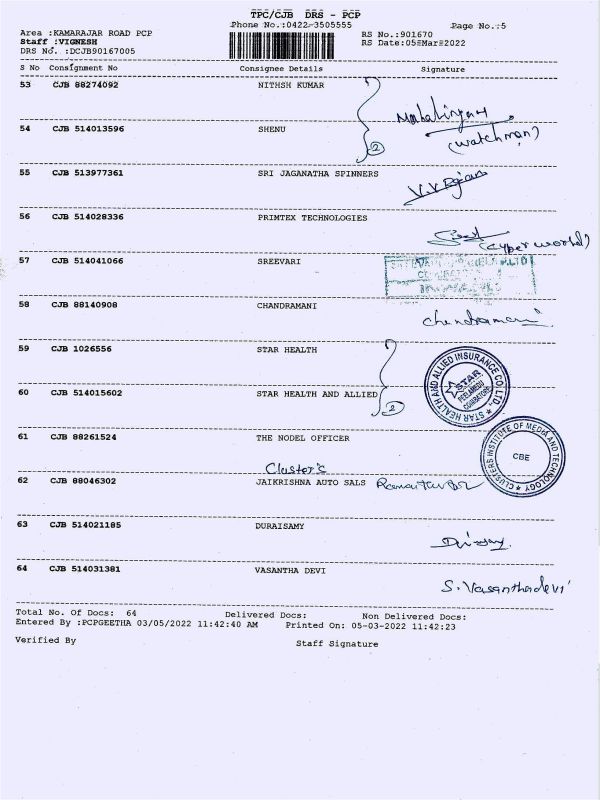 TPC/CJB DRS - PCP
Phone No.:0422-3505555
Page No.:5
Area :KAMARAJAR ROAD PCP
RS No.:901670
Staff :VIGNESH
RS Date:05-Mar-2022
DRS No. :DCJB90167005
S No Consignment No Consignee Details Signature
53 CJB 88274092 NITHSH KUMAR
(watchman)
54 CJB 514013596 SHENU
2
55 CJB 513977361 SRI JAGANATHA SPINNERS
56 CJB 514028336 PRIMTEX TECHNOLOGIES
57 CJB 514041066 SREEVARI
58 CJB 88140908 CHANDRAMANI
Chandramani
59 CJB 1026556 STAR HEALTH
STAR HEALTH AND ALLIED INSURANCE CO. LTD.
STAR
PEELAMEDU
COIMBATORE
60 CJB 514015602 STAR HEALTH AND ALLIED
2
61 CJB 88261524 THE NODEL OFFICER
Cluster's
CLUSTERS INSTITUTE OF MEDIA AND TECHNOLOGY
CBE
62 CJB 88046302 JAIKRISHNA AUTO SALS
63 CJB 514021185 DURAISAMY
64 CJB 514031381 VASANTHA DEVI
S. Vasanthadevi
Total No. Of Docs: 64 Delivered Docs: Non Delivered Docs:
Entered By :PCPGEETHA 03/05/2022 11:42:40 AM Printed On: 05-03-2022 11:42:23
Verified By Staff Signature